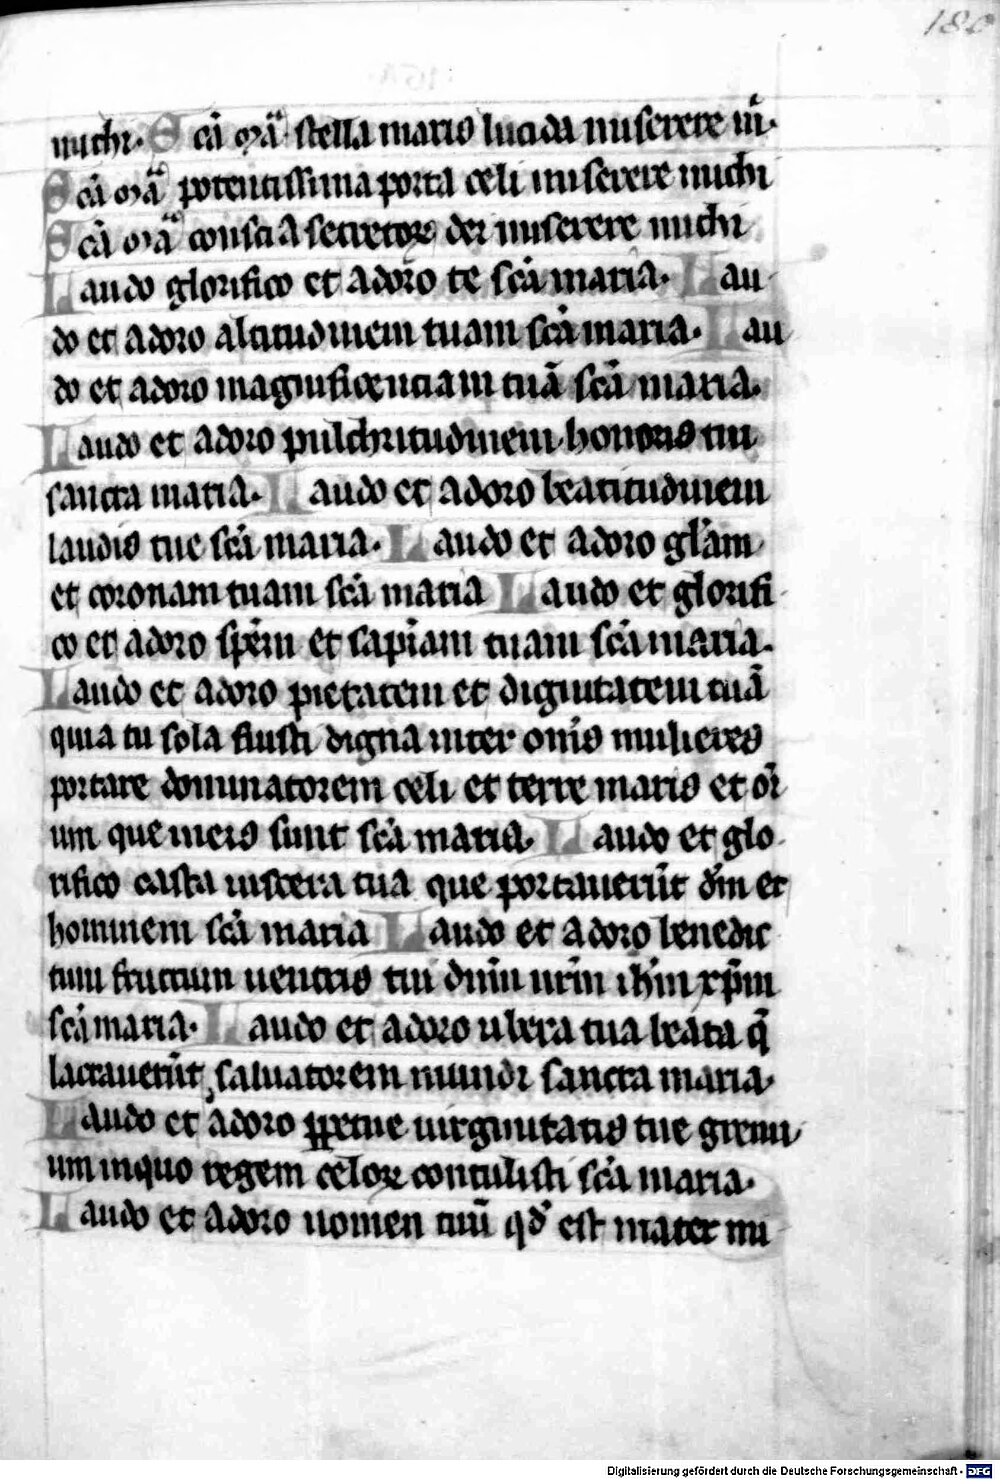 180
michi. Scā mā stella maris lucida miserere m̄.
Scā mā potentissima porta celi miserere michi
Scā mā conscia secretoꝝ dei miserere michi
Laudo glorifico et adoro te scā maria. Lau
do et adoro altitudinem tuam scā maria. Lau
do et adoro magnificenciam tuā scā maria.
Laudo et adoro pulchritudinem honoris tui
sancta maria. Laudo et adoro beatitudinem
laudis tue scā maria. Laudo et adoro gl̄am
et coronam tuam scā maria Laudo et glorifi
co et adoro sp̄em et sapīam tuam scā maria.
Laudo et adoro pietatem et dignitatem tuā
quia tu sola fuisti digna inter om̄s mulieres
portare dominatorem celi et terre maris et oī
um que in eis sunt scā maria. Laudo et glo
rifico casta uiscera tua que portauerūt dm̄ et
hominem scā maria Laudo et adoro benedic
tum fructum uentris tui dnm̄ nrm̄ ihm̄ xp̄m
scā maria. Laudo et adoro ubera tua beata q̄
lactauerūt saluatorem mundi sancta maria.
Laudo et adoro ꝑpetue uirginitatis tue gremi
um in quo regem celoꝝ contulisti scā maria.
Laudo et adoro nomen tuū qd̄ est mater mi
Digitalisierung gefördert durch die Deutsche Forschungsgemeinschaft - DFG